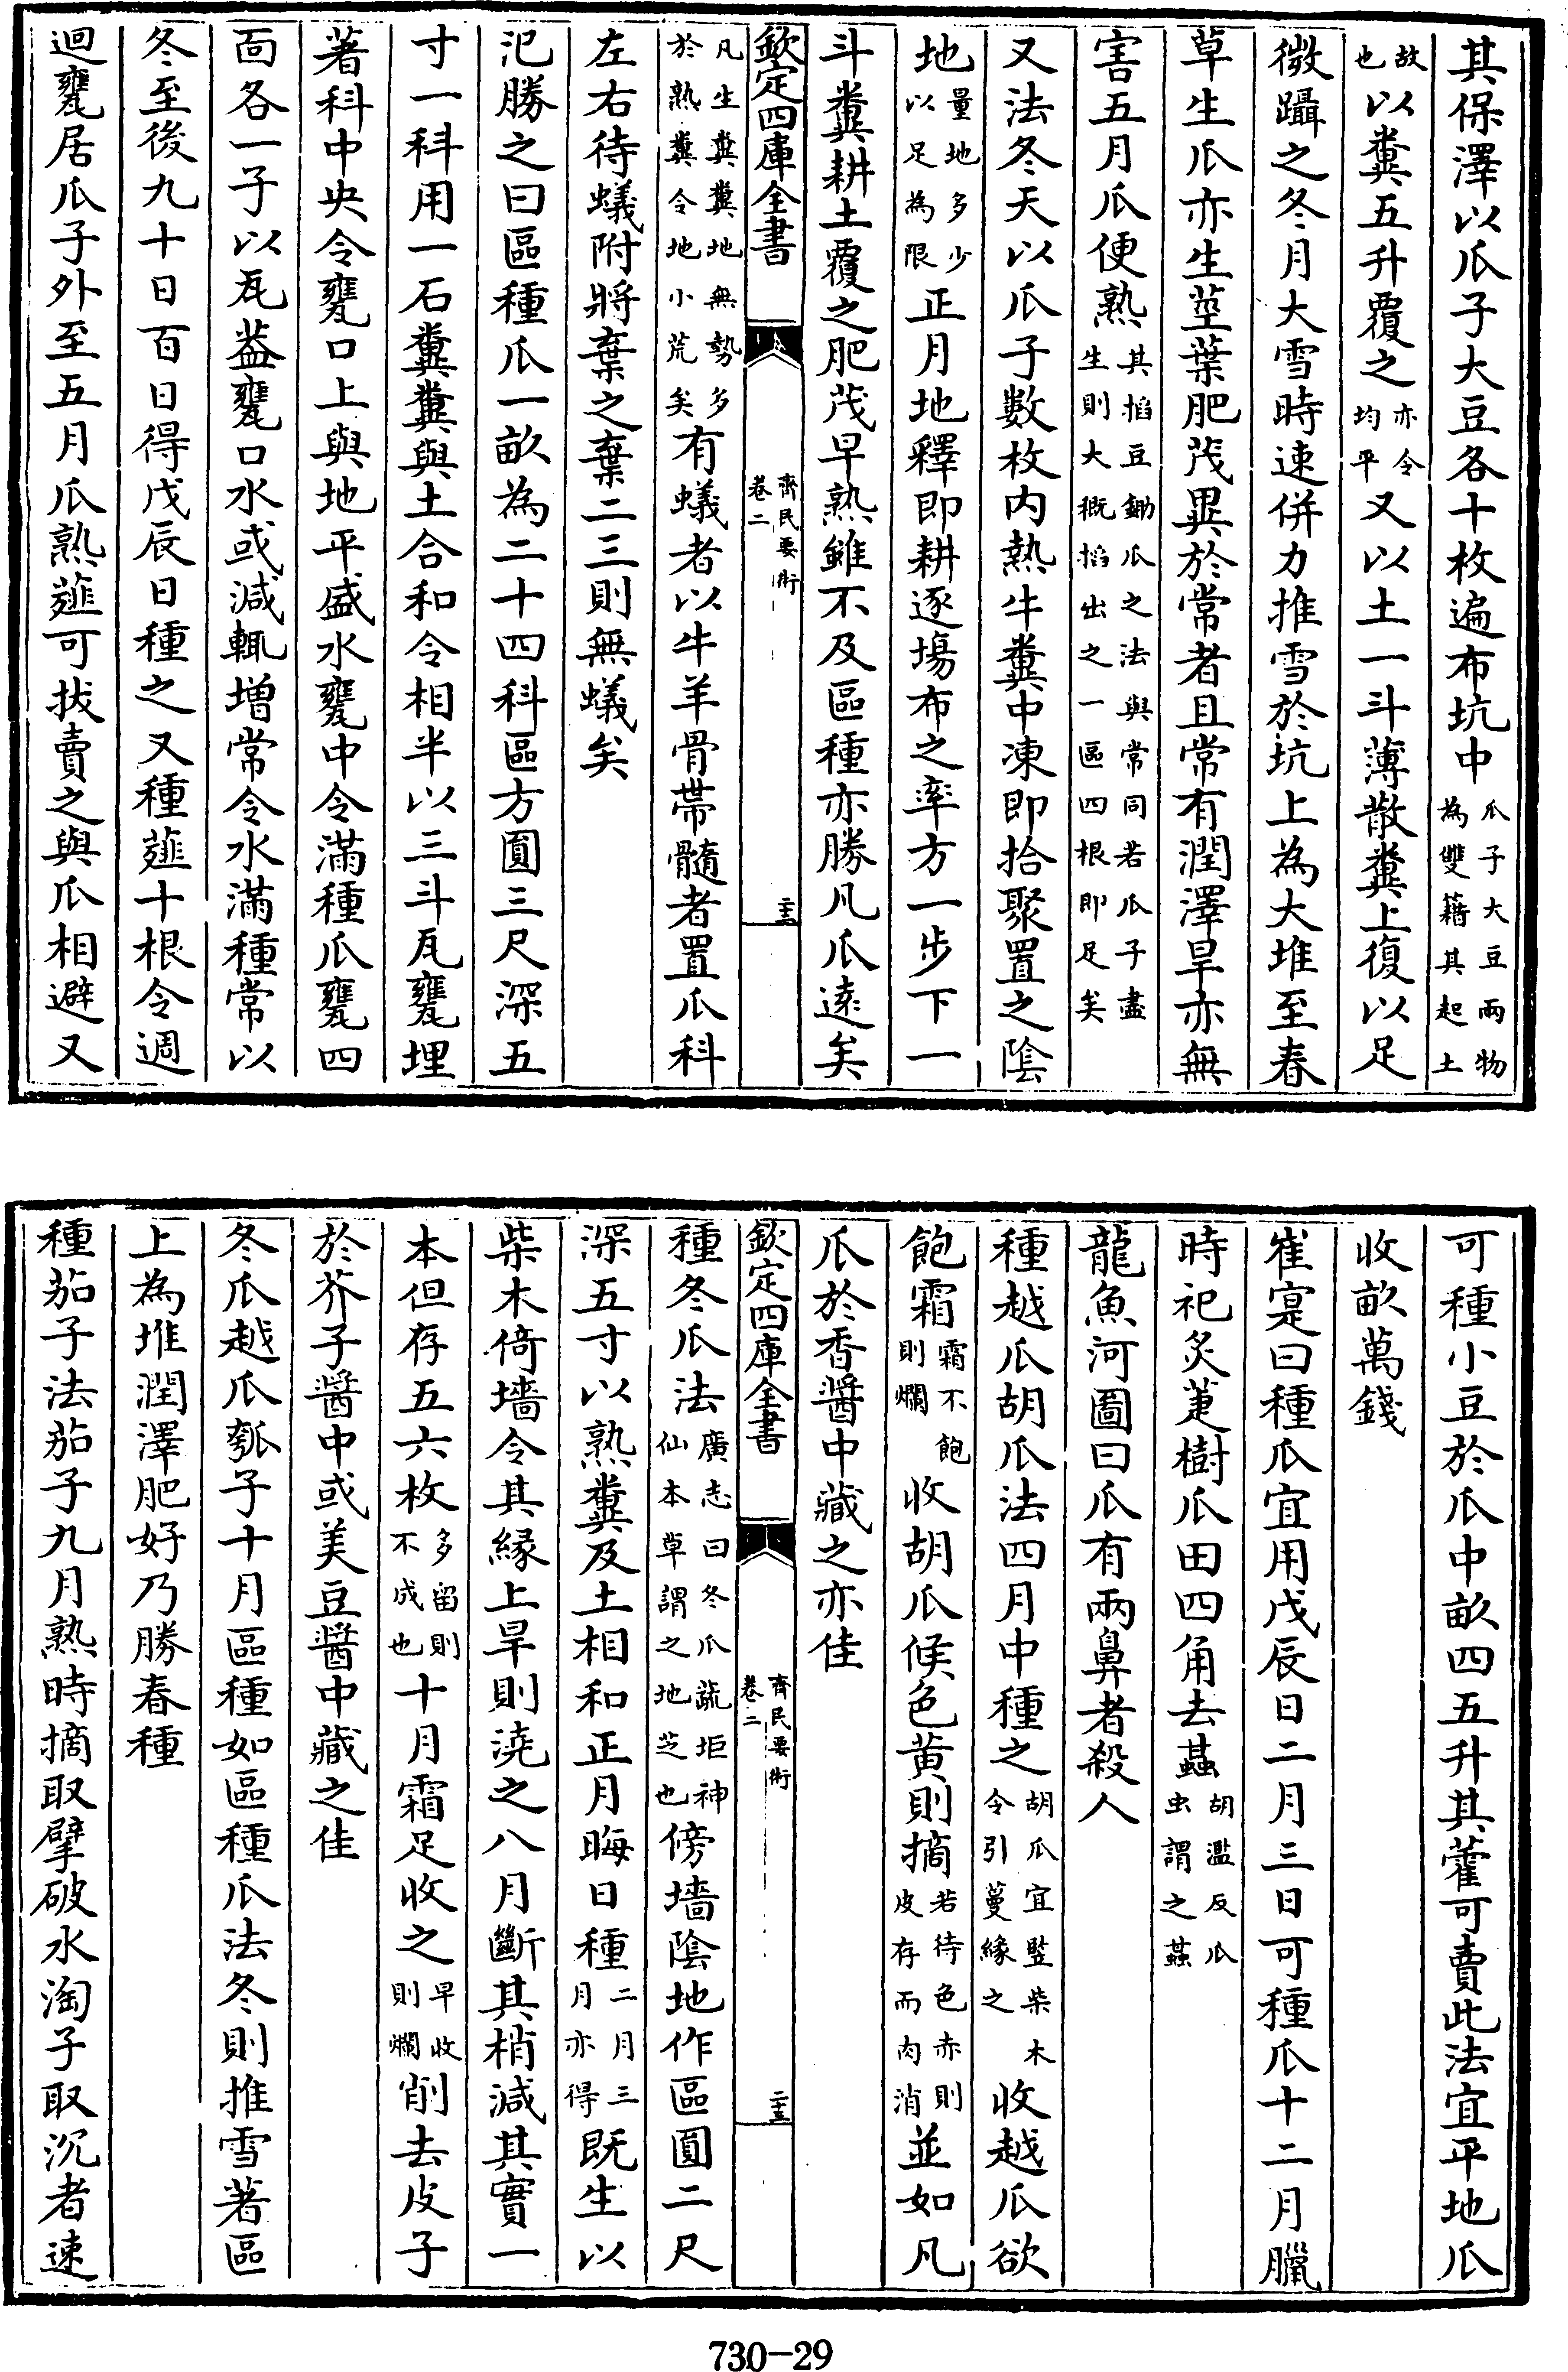 其保澤以瓜子大豆各十枚遍布坑中瓜子大豆兩物為雙藉其起土
故也以糞五升覆之亦令均平又以土一斗薄散糞上復以足
微躡之冬月大雪時速併力推雪於坑上為大堆至春
草生瓜亦生莖葉肥茂異於常者且常有潤澤旱亦無
害五月瓜便熟其掐豆鋤瓜之法與常同若瓜子盡生則大概掐出之一區四根即足矣
又法冬天以瓜子數枚內熱牛糞中凍即拾聚置之陰
地量地多少以足為限正月地釋即耕逐塲布之率方一步下一
斗糞耕土覆之肥茂早熟雖不及區種亦勝凡瓜遠矣
欽定四庫全書 齊民要術 卷二 二十三
凡生糞糞地無勢多於熟糞令地小荒矣有蟻者以牛羊骨帶髓者置瓜科
左右待蟻附將棄之棄二三則無蟻矣
氾勝之曰區種瓜一畝為二十四科區方圓三尺深五
寸一科用一石糞糞與土合和令相半以三斗瓦甕埋
著科中央令甕口上與地平盛水甕中令滿種瓜甕四
面各一子以瓦葢甕口水或減輒增常令水滿種常以
冬至後九十日百日得戊辰日種之又種薤十根令週
迴甕居瓜子外至五月瓜熟薤可拔賣之與瓜相避又
可種小豆於瓜中畝四五升其藿可賣此法宜平地瓜
收畝萬錢
崔寔曰種瓜宜用戊辰日二月三日可種瓜十二月臘
時祀炙萐樹瓜田四角去䗣胡濫反瓜虫謂之䗣
龍魚河圖曰瓜有兩鼻者殺人
種越瓜胡瓜法四月中種之胡瓜宜竪柴木令引蔓緣之收越瓜欲
飽霜霜不飽則爛收胡瓜候色黄則摘若待色赤則皮存而肉消並如凡
瓜於香醬中藏之亦佳
欽定四庫全書 齊民要術 卷二 二十三
種冬瓜法廣志曰冬瓜蔬㘝神仙本草謂之地芝也傍墻陰地作區圓二尺
深五寸以熟糞及土相和正月晦日種二月三月亦得既生以
柴木倚墻令其緣上旱則澆之八月斷其梢減其實一
本但存五六枚多留則不成也十月霜足收之早收則爛削去皮子
於芥子醬中或美豆醬中藏之佳
冬瓜越瓜瓠子十月區種如區種瓜法冬則推雪著區
上為堆潤澤肥好乃勝春種
種茄子法茄子九月熟時摘取擘破水淘子取沉者速
730-29